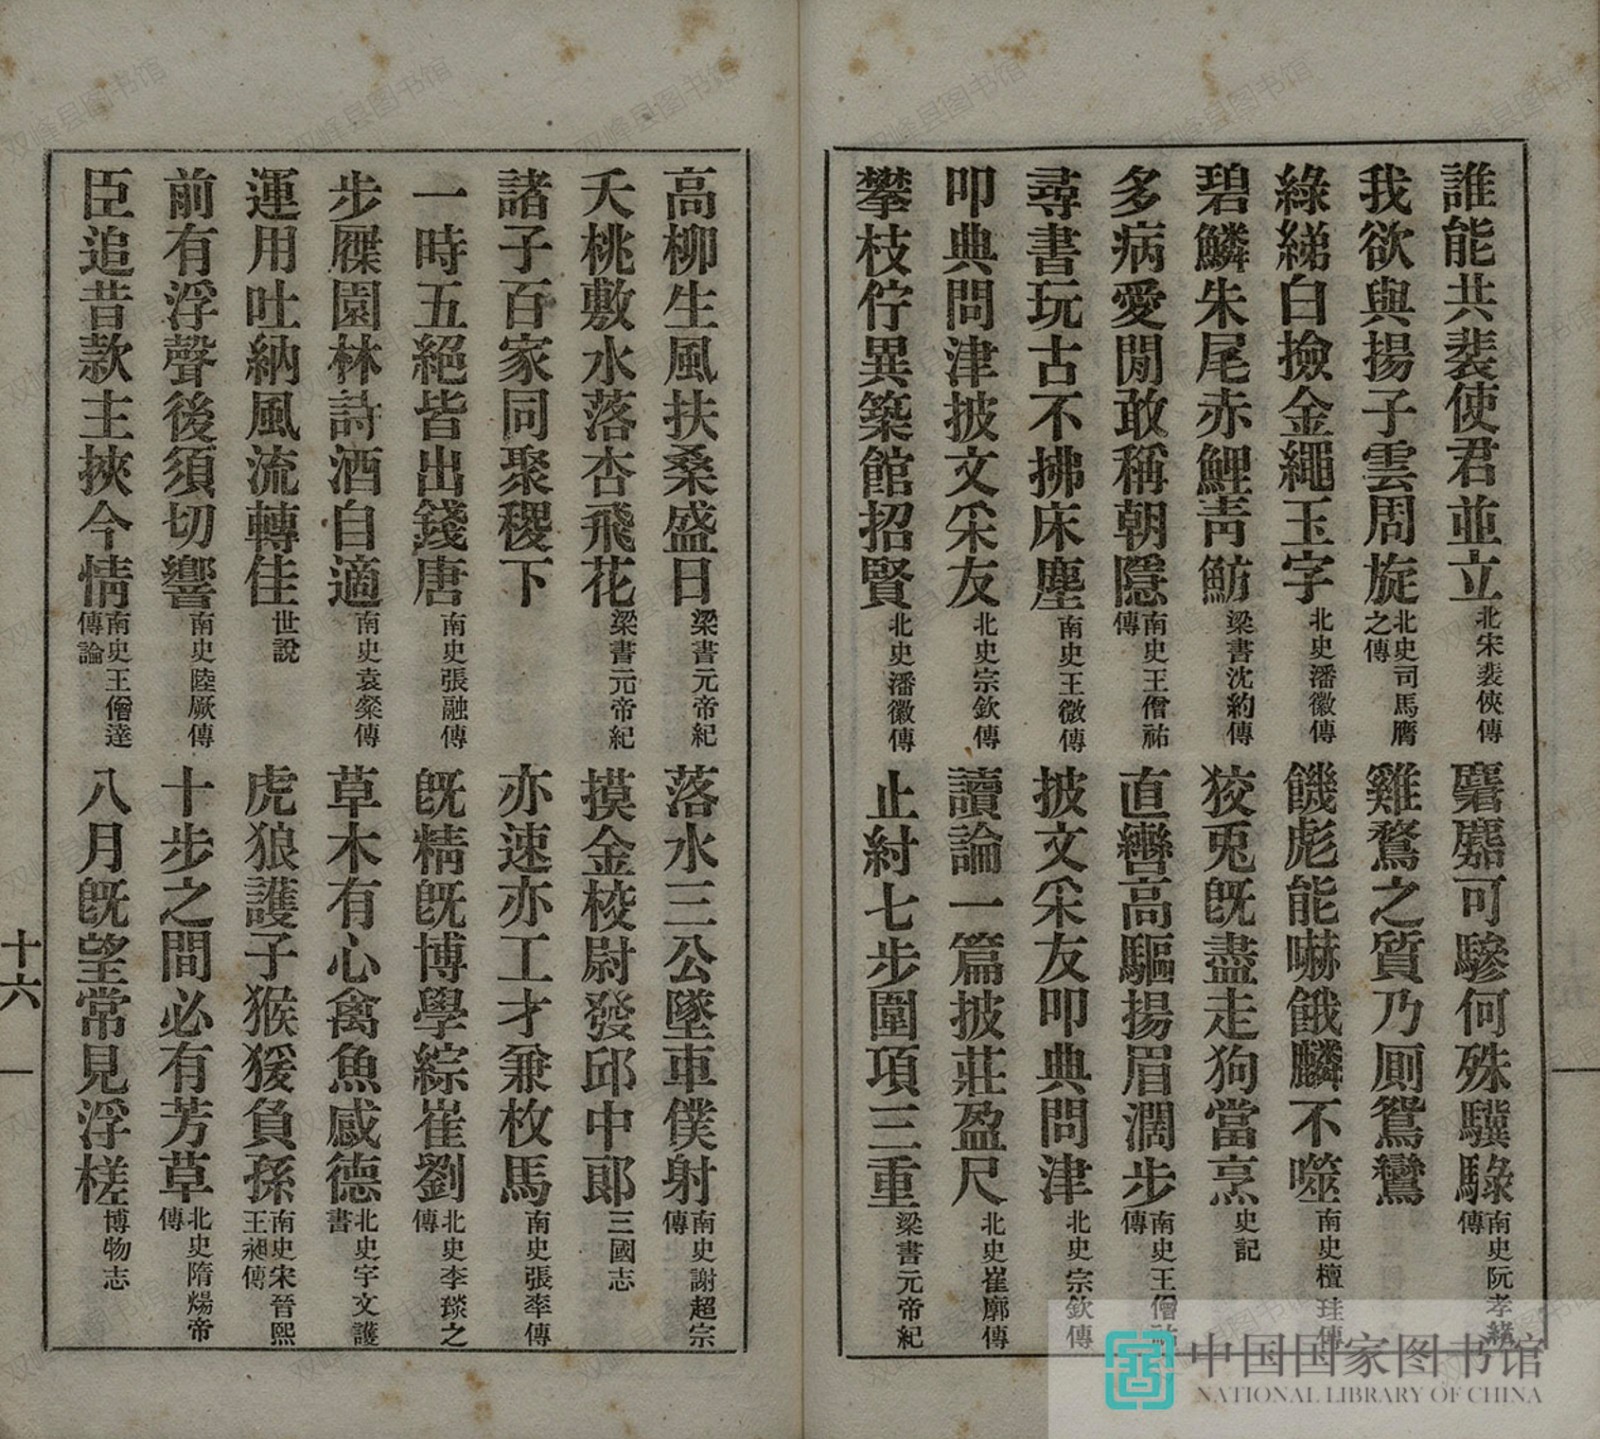 誰能共裴使君並立 北宋裴俠傳 麏麚可驂何殊驥騄 南史阮孝緒傳
我欲與揚子雲周旋 北史司馬膺之傳 雞鶩之質乃厠鴛鸞
綠綈白撿金繩玉字 北史潘徽傳 饑彪能嚇餓麟不噬 南史檀珪傳
碧鱗朱尾赤鯉靑魴 梁書沈約傳 狡兎旣盡走狗當烹 史記
多病愛閒敢稱朝隱 南史王僧祐傳 直轡高驅揚眉濶步 南史王僧祐傳
尋書玩古不拂床塵 南史王微傳 披文采友叩典問津 北史宗欽傳
叩典問津披文采友 北史宗欽傳 讀論一篇披莊盈尺 北史崔廓傳
攀枝佇異築館招賢 北史潘徽傳 止紂七步圍項三重 梁書元帝紀
高柳生風扶桑盛日 梁書元帝紀 落水三公墜車僕射 南史謝超宗傳
夭桃敷水落杏飛花 梁書元帝紀 摸金校尉發邱中郞 三國志
諸子百家同聚稷下 亦速亦工才兼枚馬 南史張率傳
一時五絕皆出錢唐 南史張融傳 旣精旣博學綜崔劉 北史李琰之傳
步屧園林詩酒自適 南史袁粲傳 草木有心禽魚感德 北史宇文護書
運用吐納風流轉佳 世說 虎狼護子猴猨負孫 南史宋晉熙王昶傳
前有浮聲後須切響 南史陸厥傳 十步之間必有芳草 北史隋煬帝傳
臣追昔款主挾今情 南史王僧達傳論 八月旣望常見浮槎 博物志
十六
中国国家图书馆
NATIONAL LIBRARY OF CHINA
双峰县图书馆